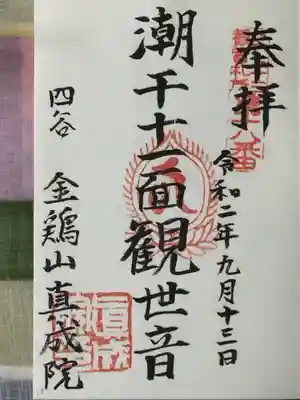 奉拝
令和二年九月十三日
潮干十一面観世音
四谷 金鶏山真成院